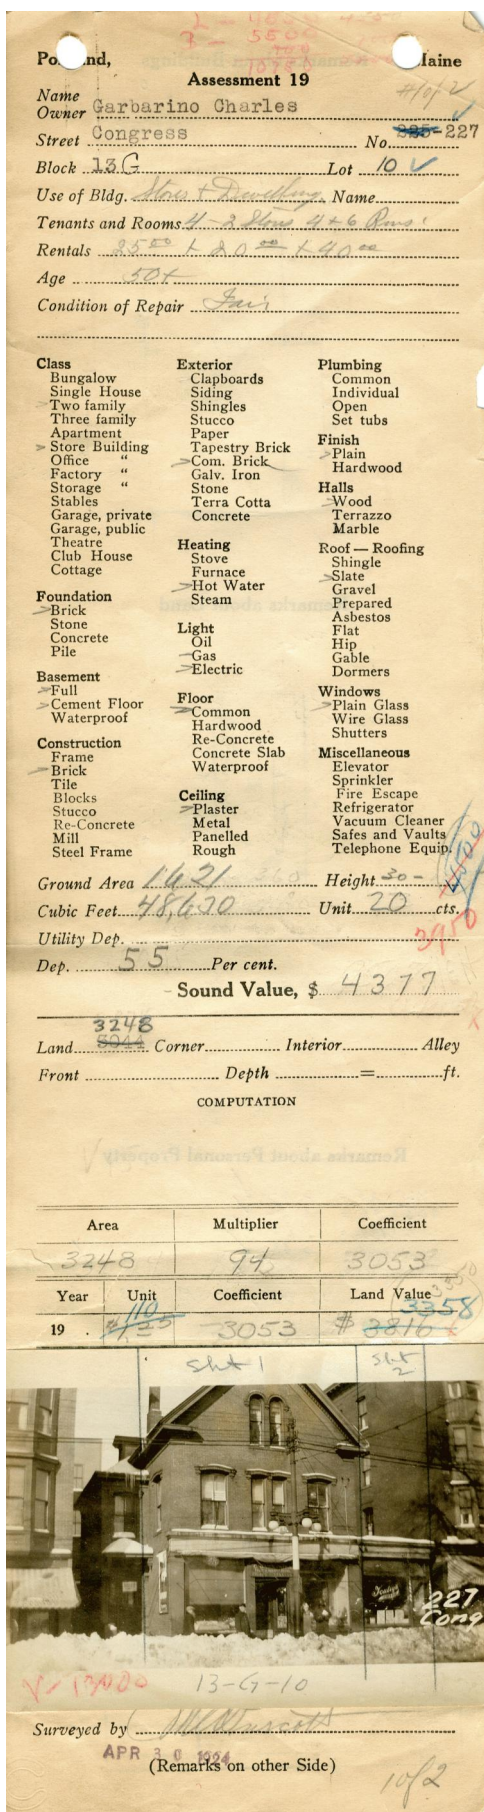 L - 4800 4250
3 - 5500
10750
Portland, Maine
Assessment 19
#1 of 2
Name
Owner Garbarino Charles
Street Congress No. 225-227
Block 13 G Lot 10 ✓
Use of Bldg. Stores + Dwelling Name
Tenants and Rooms 4 - 2 Stores 4 + 6 Rms.
Rentals 25 00 + 20 00 + 40 00
Age 50+
Condition of Repair Fair
Class
Bungalow
Single House
Two family
Three family
Apartment
Store Building
Office "
Factory "
Storage "
Stables
Garage, private
Garage, public
Theatre
Club House
Cottage
Foundation
Brick
Stone
Concrete
Pile
Basement
Full
Cement Floor
Waterproof
Construction
Frame
Brick
Tile
Blocks
Stucco
Re-Concrete
Mill
Steel Frame
Exterior
Clapboards
Siding
Shingles
Stucco
Paper
Tapestry Brick
Com. Brick
Galv. Iron
Stone
Terra Cotta
Concrete
Heating
Stove
Furnace
Hot Water
Steam
Light
Oil
Gas
Electric
Floor
Common
Hardwood
Re-Concrete
Concrete Slab
Waterproof
Ceiling
Plaster
Metal
Panelled
Rough
Plumbing
Common
Individual
Open
Set tubs
Finish
Plain
Hardwood
Halls
Wood
Terrazzo
Marble
Roof — Roofing
Shingle
Slate
Gravel
Prepared
Asbestos
Flat
Hip
Gable
Dormers
Windows
Plain Glass
Wire Glass
Shutters
Miscellaneous
Elevator
Sprinkler
Fire Escape
Refrigerator
Vacuum Cleaner
Safes and Vaults
Telephone Equip.
Ground Area 1621 Height 30-
Cubic Feet 48,630 Unit 20 cts.
3950
Utility Dep.
Dep. 55 Per cent.
Sound Value, $ 4377
3248
Land 5044 Corner Interior Alley
Front Depth = ft.
COMPUTATION
Remarks about Personal Property
Area Multiplier Coefficient
3248 94 3053
Year Unit Coefficient Land Value
110 3358
19 . $1.25 3053 $ 3816
Sht 1 Sht 2
227
Cong
V-13000 13-G-10
Surveyed by
APR 30 1924
(Remarks on other Side)
1 of 2